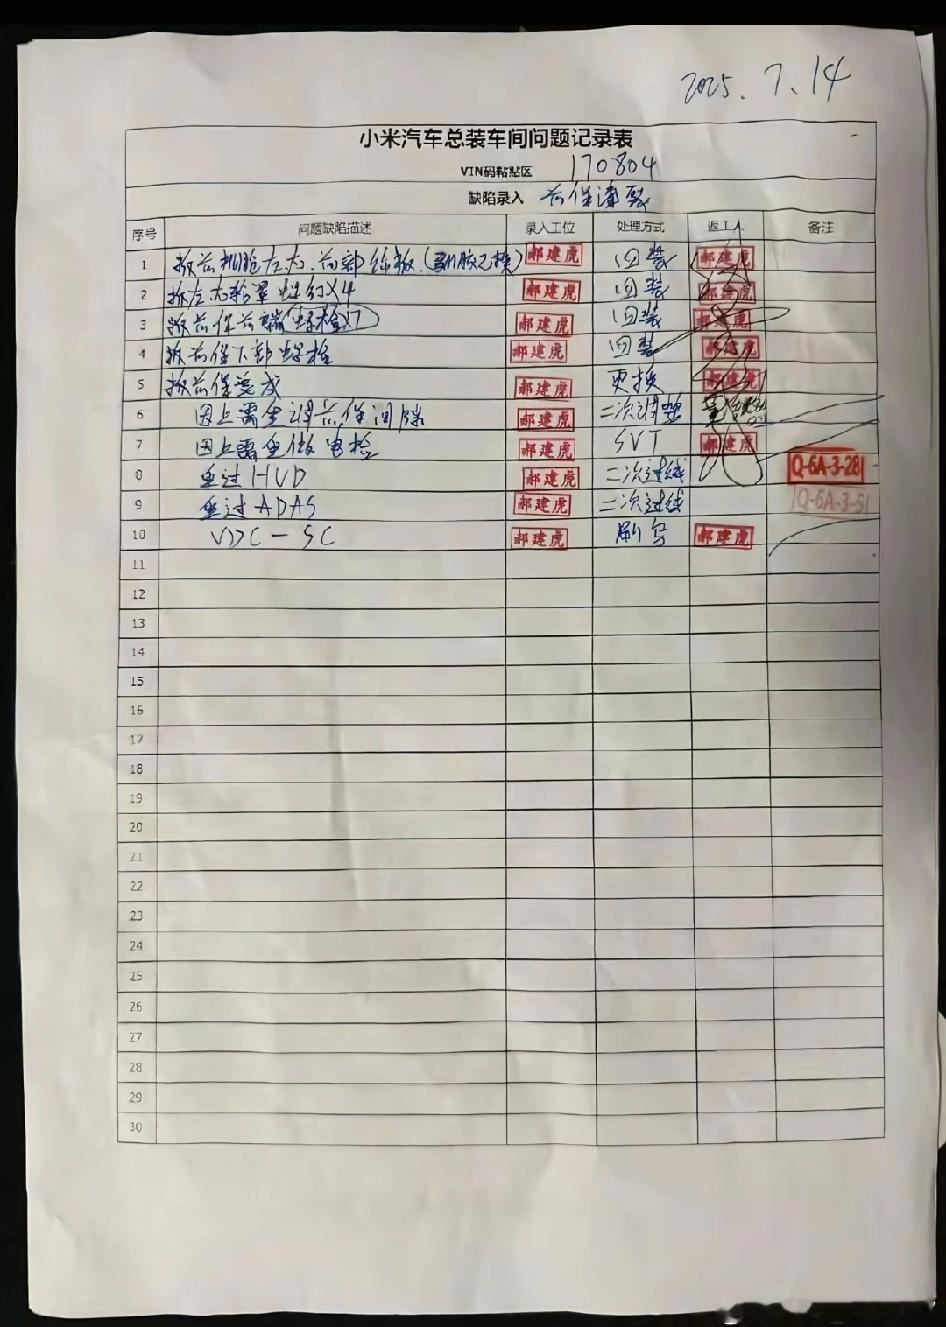 2025.7.14
小米汽车总装车间问题记录表
VIN码粘贴区 170804
缺陷录入 前保渗裂
序号 问题缺陷描述 录入工位 处理方式 返工人 备注
1 拆前机舱左右、前部饰板 郝建虎 回装 郝建虎
2 拆左右轮罩 ×4 郝建虎 回装 郝建虎
3 拆前保前端(螺栓×7) 郝建虎 回装 郝建虎
4 拆前保下部螺栓 郝建虎 回装 郝建虎
5 拆前保总成 郝建虎 更换 郝建虎
6 因上需重调前保间隙 郝建虎 二次调整
7 因上需重做电检 郝建虎 SVT 郝建虎
8 重过HUD 郝建虎 二次过线 Q-6A-3-28
9 重过ADAS 郝建虎 二次过线 Q-6A-3-51
10 VDC-SC 郝建虎 刷写 郝建虎
11
12
13
14
15
16
17
18
19
20
21
22
23
24
25
26
27
28
29
30